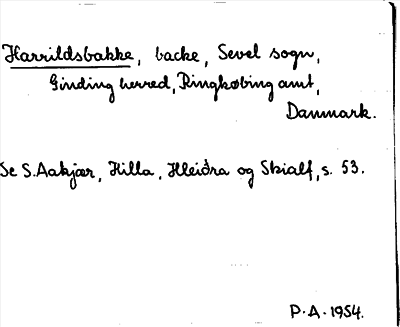 Harrildsbakke, backe, Sevel sogn,
Ginding herred, Ringkøbing amt,
Danmark.
Se S. Aakjær, Hilla, Hleiðra og Skialf, s. 53.
P. A. 1954.